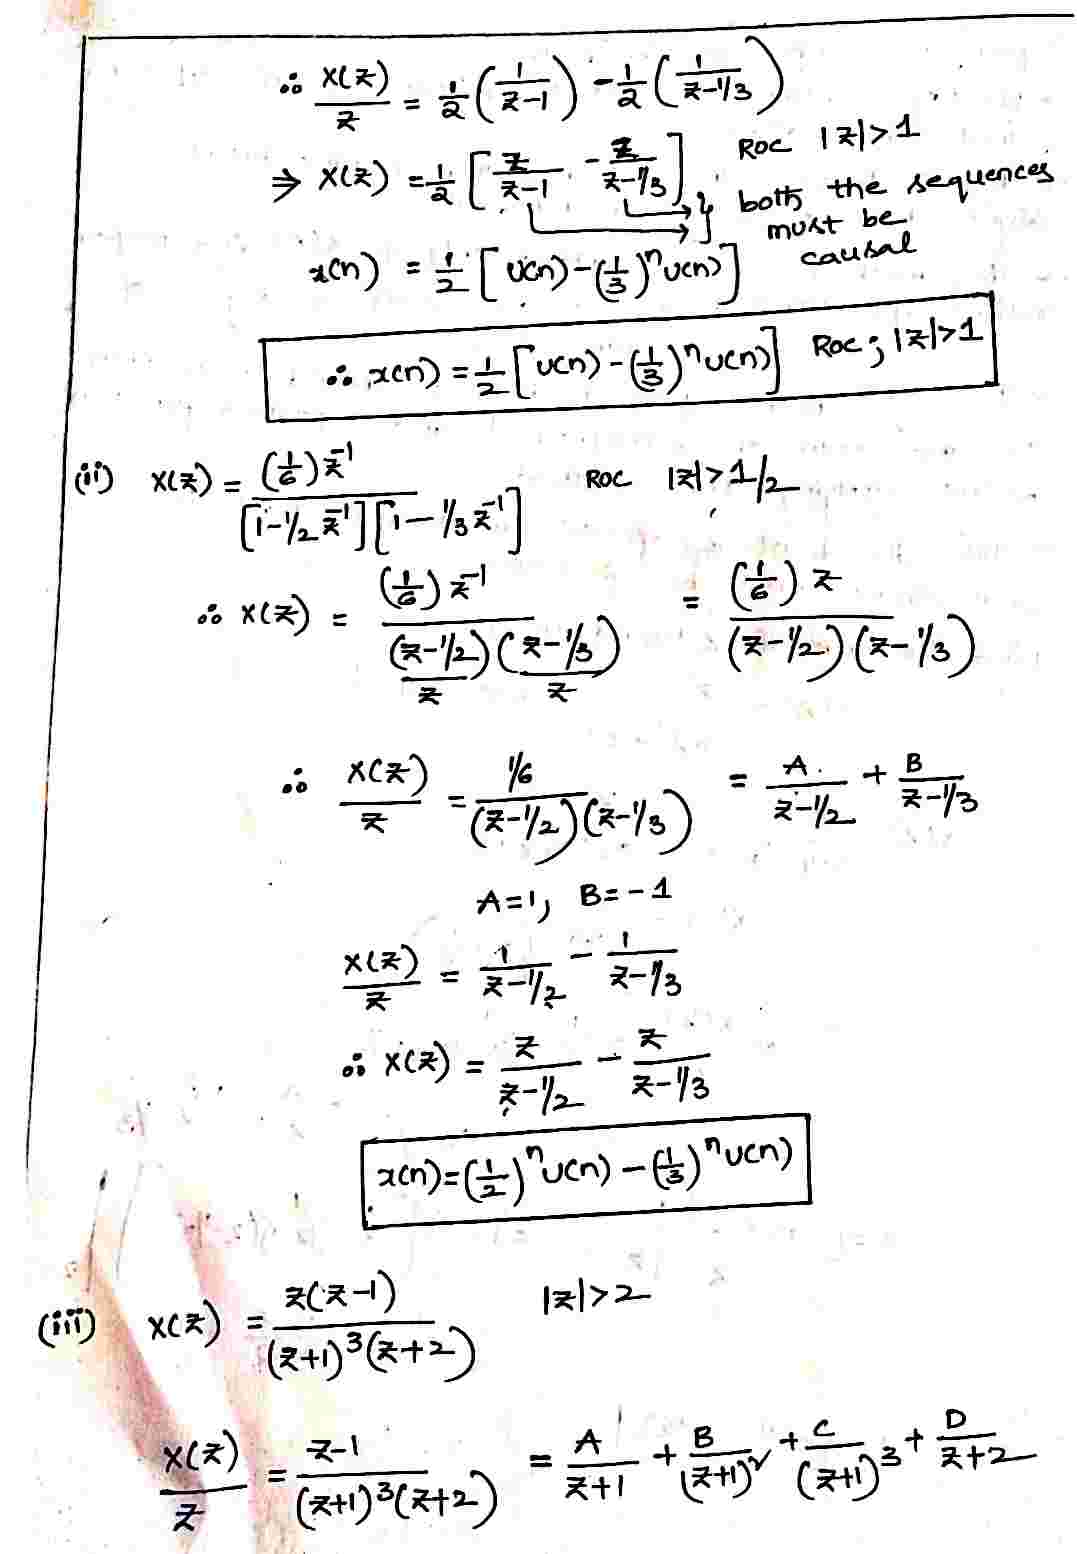 ∴ X(z)/z = 1/2 (1/(z-1)) - 1/2 (1/(z-1/3))
⇒ X(z) = 1/2 [z/(z-1) - z/(z-1/3)] ROC |z|>1
both the sequences must be causal
x(n) = 1/2 [U(n) - (1/3)^n U(n)]
∴ x(n) = 1/2 [U(n) - (1/3)^n U(n)] ROC; |z|>1
(ii) X(z) = (1/6) z^-1 / [1-1/2 z^-1][1-1/3 z^-1] ROC |z|>1/2
∴ X(z) = (1/6) z^-1 / ((z-1/2)/z (z-1/3)/z) = (1/6) z / (z-1/2)(z-1/3)
∴ X(z)/z = 1/6 / (z-1/2)(z-1/3) = A/(z-1/2) + B/(z-1/3)
A=1, B=-1
X(z)/z = 1/(z-1/2) - 1/(z-1/3)
∴ X(z) = z/(z-1/2) - z/(z-1/3)
x(n) = (1/2)^n U(n) - (1/3)^n U(n)
(iii) X(z) = z(z-1) / (z+1)^3 (z+2) |z|>2
X(z)/z = z-1 / (z+1)^3 (z+2) = A/(z+1) + B/(z+1)^2 + C/(z+1)^3 + D/(z+2)